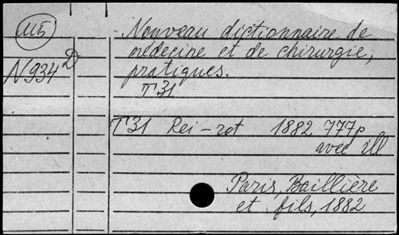 МБ
Nouveau dictionnaire de
N934 D médecine et de chirurgie,
pratiques.
T 31
T 31 Rei-rot 1882 777p
avec ill
Paris, Baillière
et fils, 1882